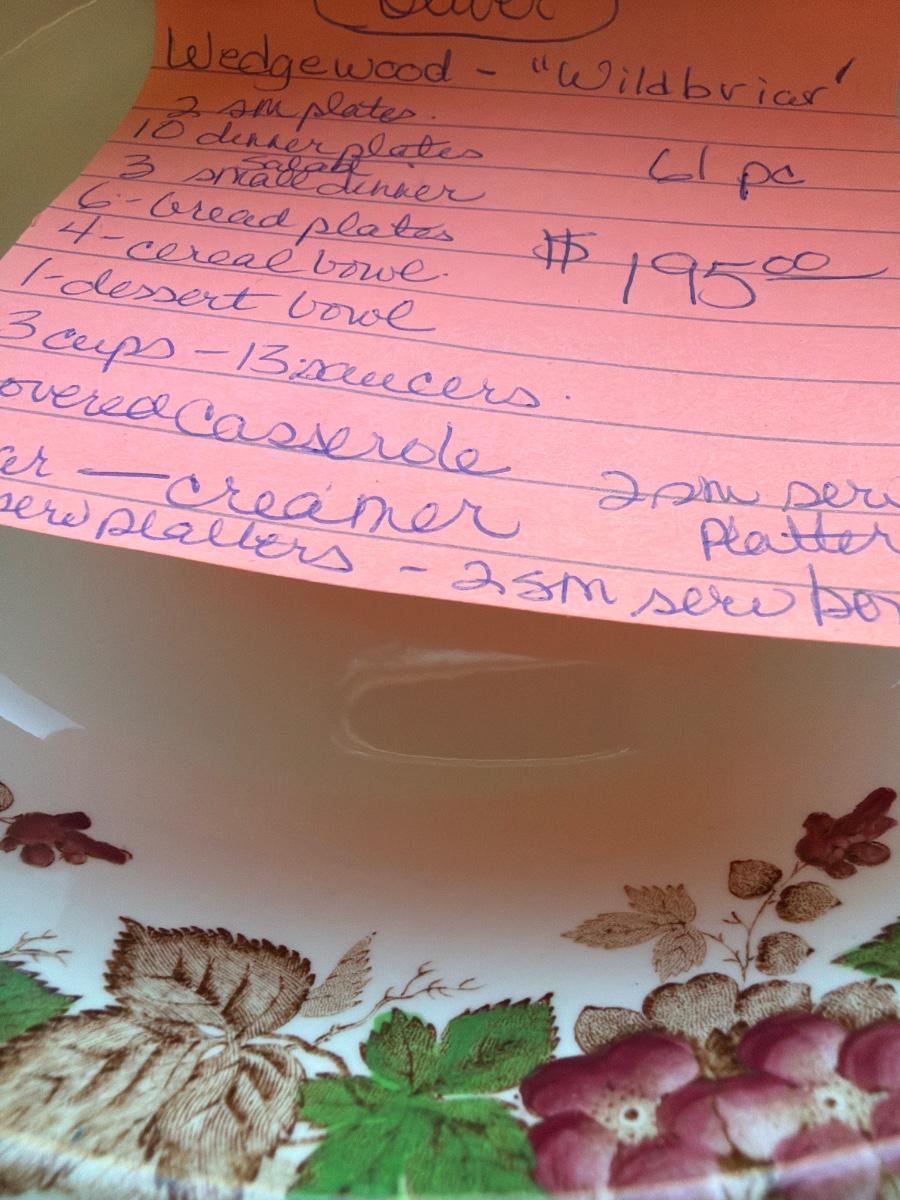 Wedgewood - "Wildbriar'
2 sm plates.
10 dinner plates
61 pc
salad
3 small dinner
6 - bread plates
$ 195.00
4 - cereal bowl.
1 - dessert bowl
3 cups - 13 saucers.
overed Casserole
er — creamer
2 sm serv
Platter
serv platters - 2 sm serv bo